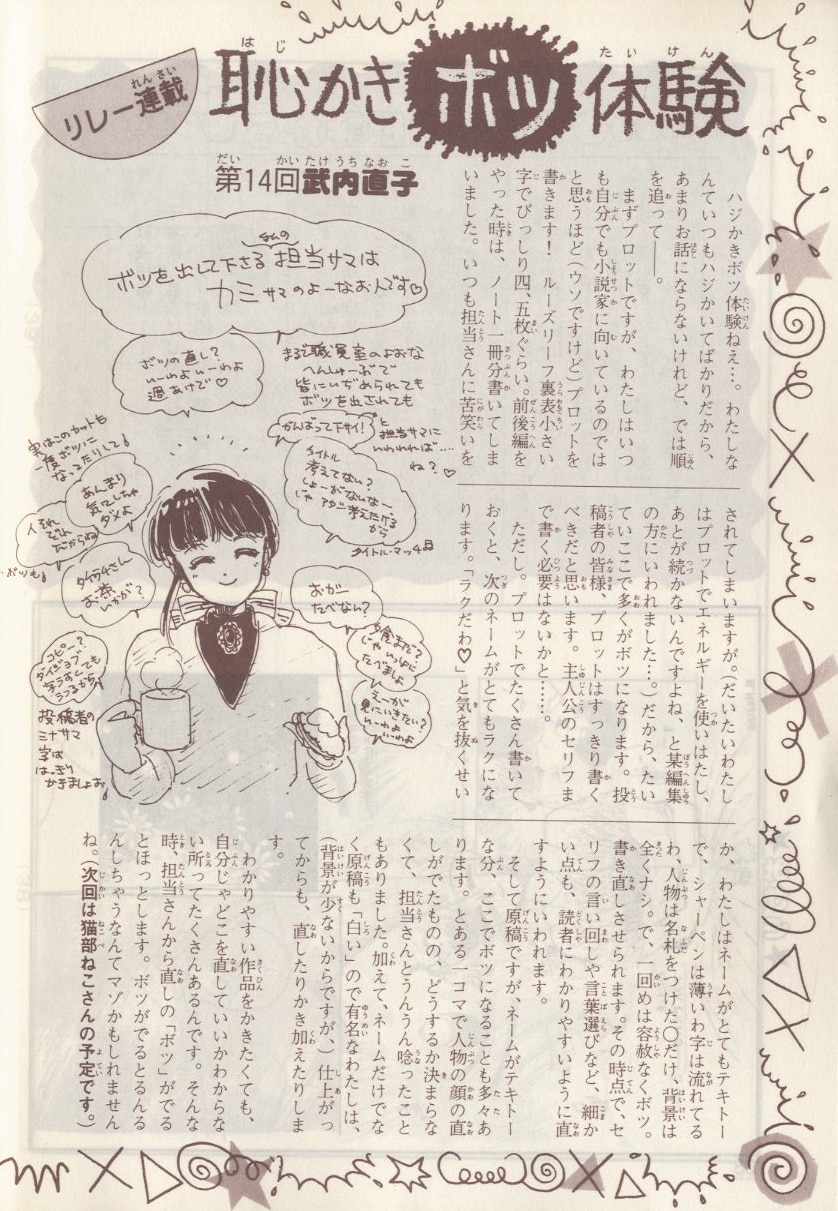 リレー連載
恥かきボツ体験
第14回武内直子
ハジかきボツ体験ねえ…。わたしな
んていつもハジかいてばかりだから、
あまりお話にならないけれど、では順
を追って――。
まずプロットですが、わたしはいつ
も自分でも小説家に向いているのでは
と思うほど(ウソですけど)プロットを
書きます! ルーズリーフ裏表小さい
字でびっしり四、五枚ぐらい。前後編を
やった時は、ノート一冊分書いてしま
いました。いつも担当さんに苦笑いを
されてしまいますが。(だいたいわたし
はプロットでエネルギーを使いはたし、
あとが続かないんですよね、と某編集
の方にいわれました…。)だから、たい
ていここで多くがボツになります。投
稿者の皆様、プロットはすっきり書く
べきだと思います。主人公のセリフま
で書く必要はないかと……。
ただし。プロットでたくさん書いて
おくと、次のネームがとてもラクにな
ります。「ラクだわ♡」と気を抜くせい
か、わたしはネームがとてもテキトー
で、シャーペンは薄いわ字は流れてる
わ、人物は名札をつけた〇だけ、背景は
全くナシ。で、一回めは容赦なくボツ。
書き直しさせられます。その時点で、セ
リフの言い回しや言葉選びなど、細か
い点も、読者にわかりやすいように直
すようにいわれます。
そして原稿ですが、ネームがテキトー
な分、ここでボツになることも多々あ
ります。とある一コマで人物の顔の直
しがでたものの、どうするか決まらな
くて、担当さんとうんうん唸ったこと
もありました。加えて、ネームだけでな
く原稿も「白い」ので有名なわたしは、
(背景が少ないからですが、)仕上がっ
てからも、直したりかき加えたりしま
す。
わかりやすい作品をかきたくても、
自分じゃどこを直していいかわからな
い所ってたくさんあるんです。そんな
時、担当さんから直しの「ボツ」がでる
とほっとします。ボツがでるとるんる
んしちゃうなんてマゾかもしれません
ね。(次回は猫部ねこさんの予定です。)
ボツを出して下さる 担当サマは
カミサマのよーなお人です♡
ボツの直し?
いーわよいーわよ
週あけで♡
まるで職員室のよおな
へんしゅーぶで
皆にいぢめられても
ボツを出されても
がんばって下サイ! と
担当サマに
いわれれば…
ね?♡
タイトル
考えてない?
しょーがないなー
タイトル・マッチ
実はこのカットも
一度ボツに
なってたりして
あんまり
気にしちゃ
ダメよ
お茶
いかが?
おかし
たべなよ?
えーが
見にいきたい?
いーわよ
いーわよ
コピー?
ダイジョブ
字うすくても
うつるから
投稿者の
ミナサマ
字は
はっきり
かきましょお